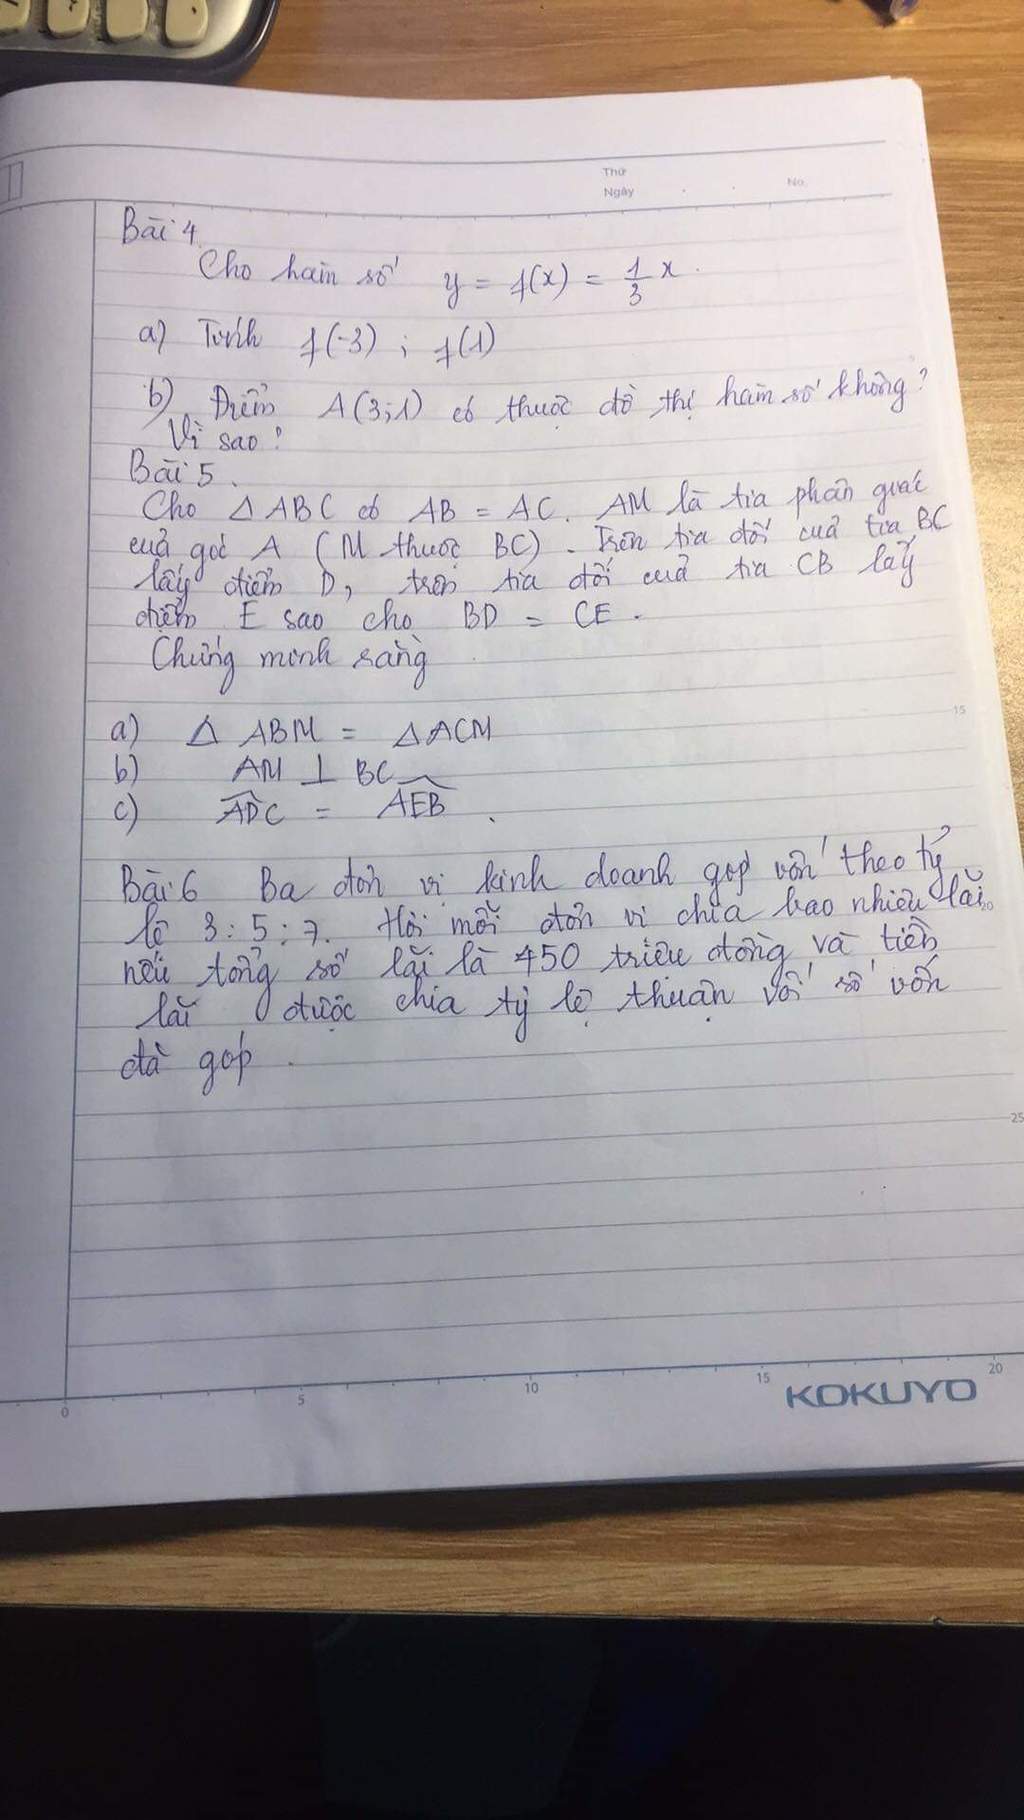 Thứ
Ngày
No.
Bài 4
Cho hàm số y = f(x) = 1/3 x.
a) Tính f(-3) ; f(1)
b) Điểm A(3;1) có thuộc đồ thị hàm số không?
Vì sao?
Bài 5.
Cho △ABC có AB = AC. AM là tia phân giác
của góc A (M thuộc BC). Trên tia đối của tia BC
lấy điểm D, trên tia đối của tia CB lấy
điểm E sao cho BD = CE.
Chứng minh rằng
a) △ABM = △ACM
b) AM ⊥ BC
c) \widehat{ADC} = \widehat{AEB}.
Bài 6 Ba đơn vị kinh doanh góp vốn theo tỷ
lệ 3 : 5 : 7. Hỏi mỗi đơn vị chia bao nhiêu lãi
nếu tổng số lãi là 450 triệu đồng và tiền
lãi được chia tỷ lệ thuận với số vốn
đã góp.
15
20
25
0 5 10 15 20
KOKUYO